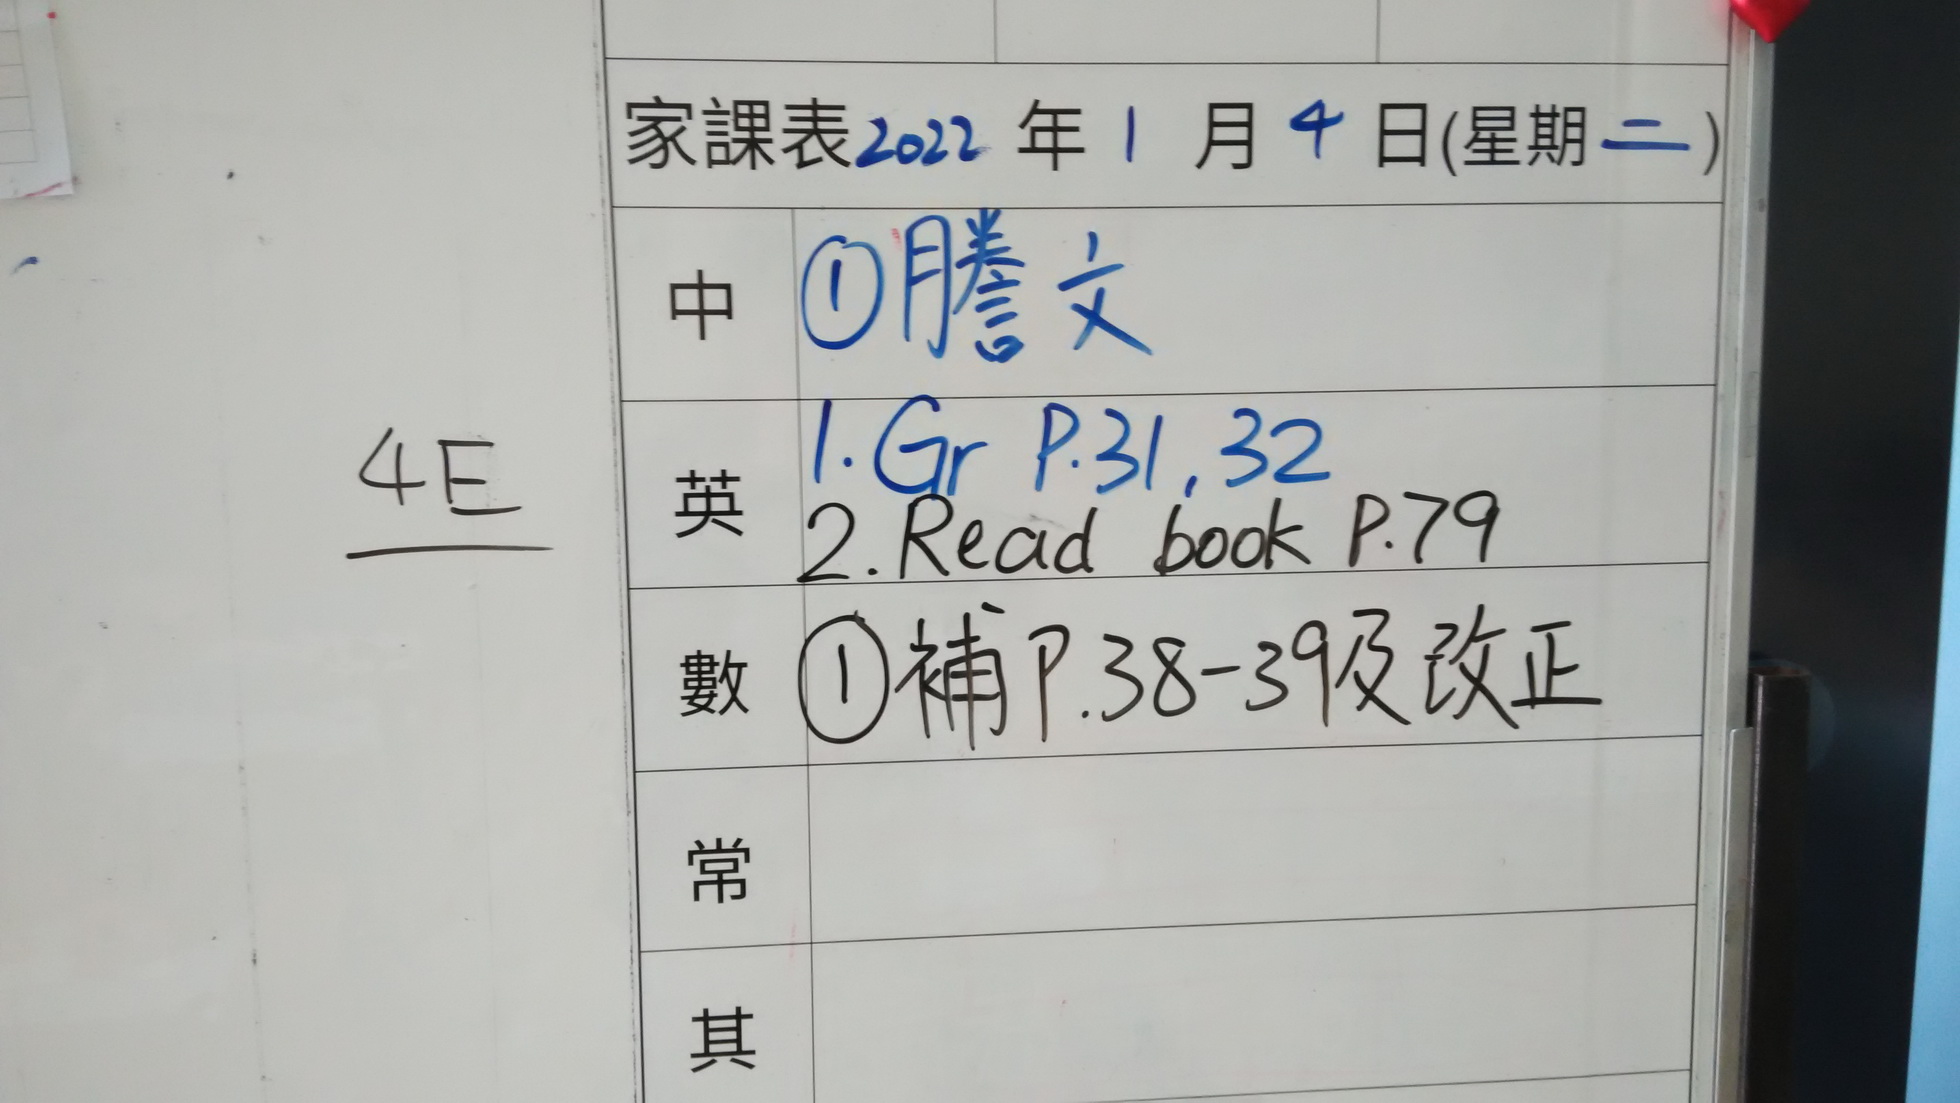 家課表2022年1月4日(星期二)
中 ①謄文
英 1. Gr P.31, 32
2. Read book P.79
4E
數 ①補P.38-39及改正
常
其